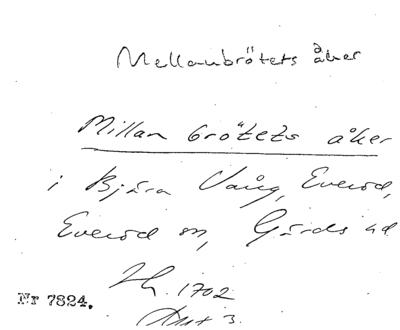 Mellanbrötets åker
Millan brötets åker
i Bjära Vång, Everöd,
Everöd sn, Gärds hd
1702
Nr 7824.